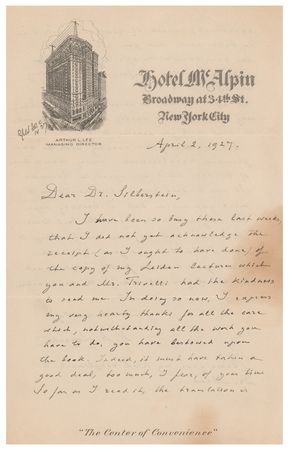 Hotel McAlpin
Broadway at 34th St.
New York City
ARTHUR L. LEE
MANAGING DIRECTOR
April 2, 1927.
Dear Dr. Silberstein,
I have been so busy these last weeks
that I did not yet acknowledge the
receipt (as I ought to have done) of
the copy of my Leiden lectures which
you and Mr. Trivelli had the kindness
to send me. In doing so now, I express
my very hearty thanks for all the care
which, notwithstanding all the work you
have to do, you have bestowed upon
the book. Indeed, it must have taken a
good deal, too much, I fear, of your time
So far as I read it, the translation is
"The Center of Convenience"